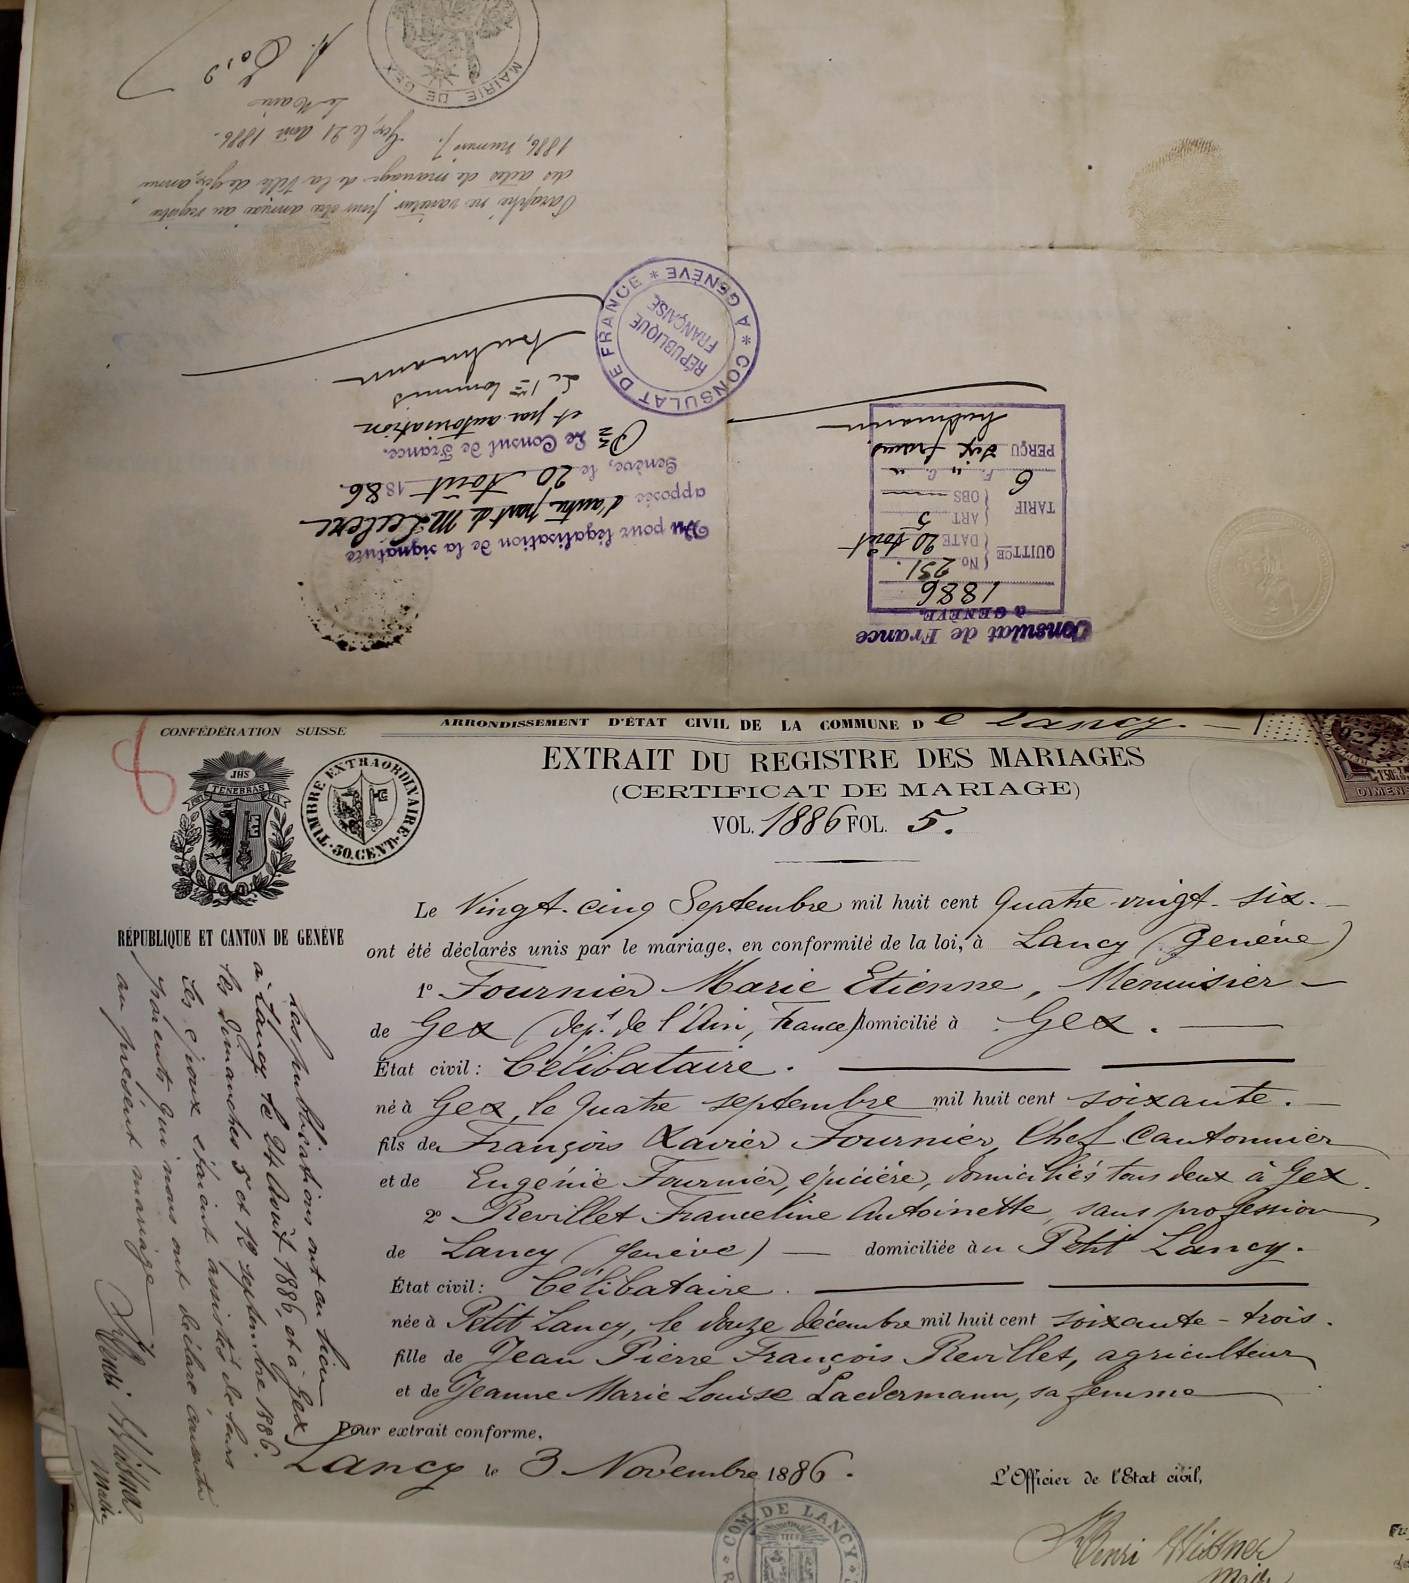 MAIRIE DE GEX
Paraphé ne varietur pour être annexé au registre
des actes de mariage de la Ville de Gex, année
1886, numéro 7. Gex, le 21 Août 1886.
Le Maire
CONSULAT DE FRANCE * A GENÈVE *
RÉPUBLIQUE
FRANÇAISE
Vu pour légalisation de la signature
apposée d'autre part de M. Leclerc
Genève, le 20 Août 1886.
Le Consul de France.
et par autorisation
Le 1er Commis
Consulat de France
à GENÈVE.
1886
QUITTCE No 251.
DATE 20 Août
TARIF ART 5
OBS
6
F. " C. "
PERÇU dix francs
CONFÉDÉRATION SUISSE
ARRONDISSEMENT D'ÉTAT CIVIL DE LA COMMUNE De Lancy.
8
JHS
POST TENEBRAS LUX
TIMBRE EXTRAORDINAIRE
50. CENT.
RÉPUBLIQUE ET CANTON DE GENÈVE
DIMENS
EXTRAIT DU REGISTRE DES MARIAGES
(CERTIFICAT DE MARIAGE)
VOL. 1886 FOL. 5.
Le Vingt-cinq Septembre mil huit cent quatre-vingt-six.
ont été déclarés unis par le mariage, en conformité de la loi, à Lancy (Genève)
1º Fournier Marie Etienne, Menuisier
de Gex (dépt de l'Ain, France) domicilié à Gex.
État civil: Célibataire.
né à Gex, le quatre septembre mil huit cent soixante.
fils de François Xavier Fournier, Chef Cantonnier
et de Eugénie Fournier, épicière, domiciliés tous deux à Gex.
2º Revillet Franceline Antoinette, sans profession
de Lancy (Genève) domiciliée au Petit Lancy.
État civil: Célibataire.
née à Petit Lancy, le douze décembre mil huit cent soixante-trois.
fille de Jean Pierre François Revillet, agriculteur
et de Jeanne Marie Louise Laedermann, sa femme
Pour extrait conforme,
Lancy le 3 Novembre 1886.
L'Officier de l'Etat civil,
Henri Wissner
COM. DE LANCY
Les publications ont eu lieu
à Lancy le 24 Août 1886, et à Gex
les dimanches 5 et 12 septembre 1886.
Les époux étaient assistés de leurs
parents qui nous ont déclaré consentir
au présent mariage
Henri Wissner